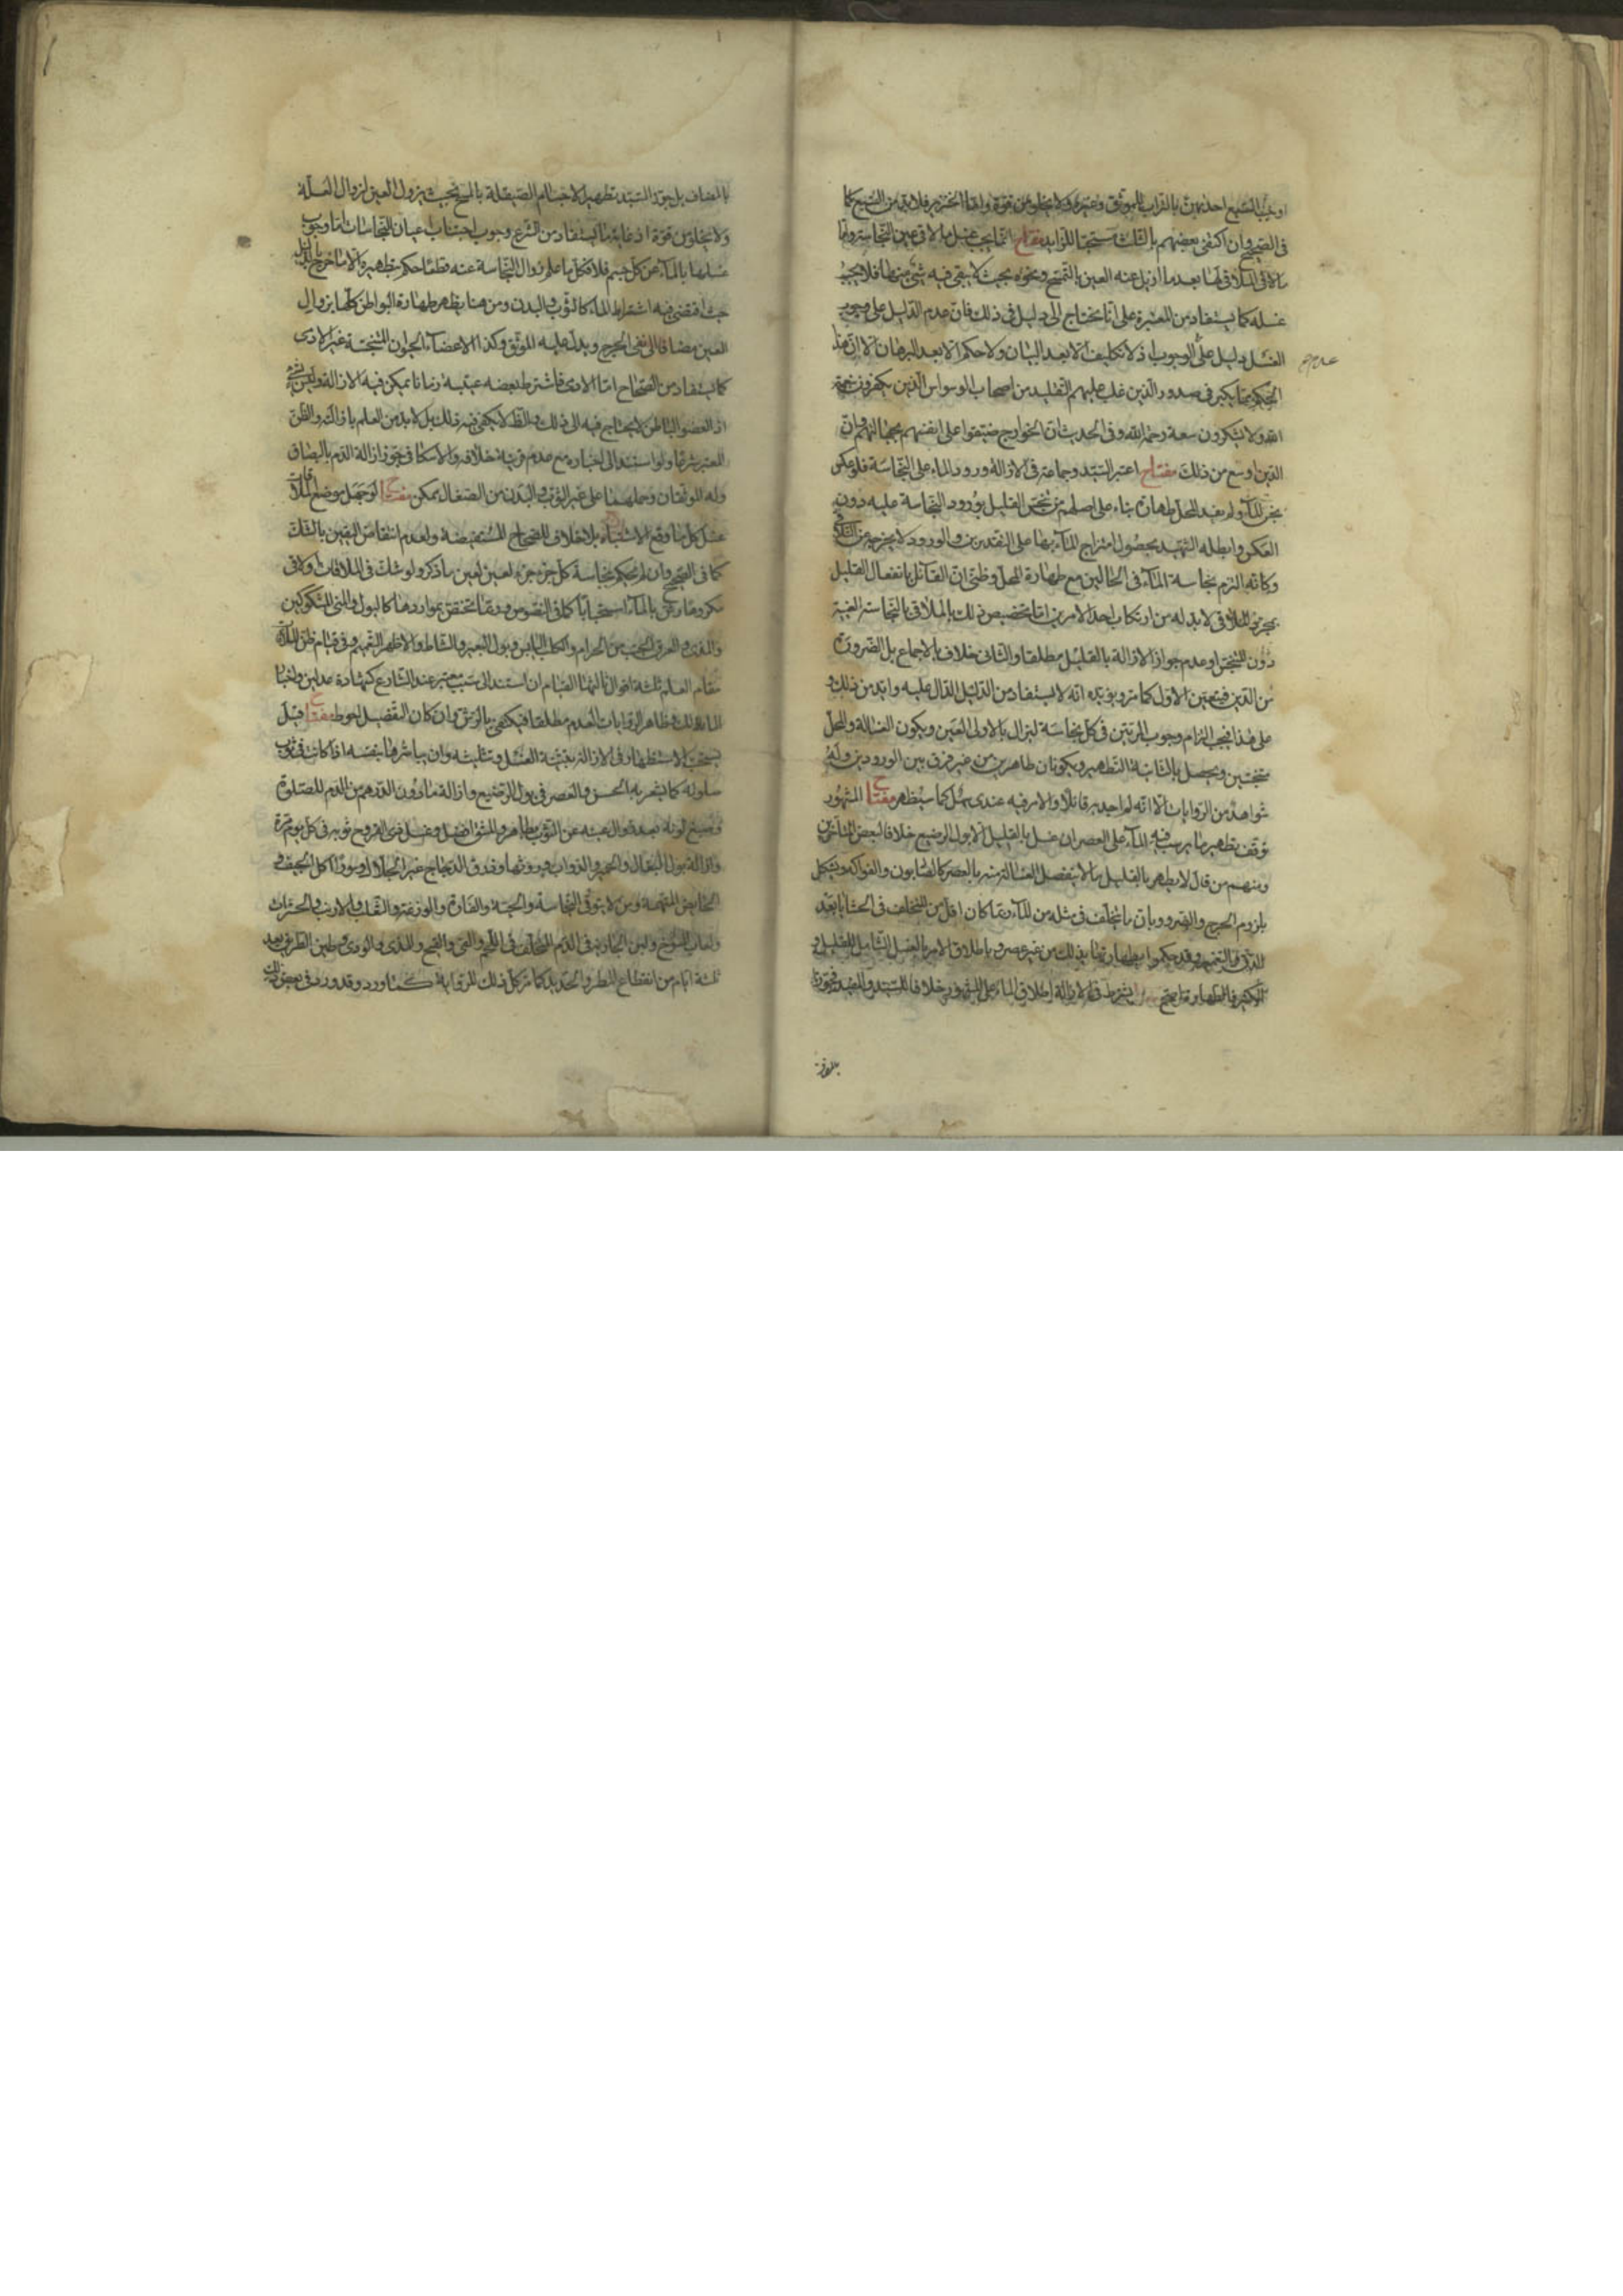 في الصحيح وان اكتفى بعضهم بالثلث مستحبا للزايد مفتاح انما يجب غسل ما لاقى عين النجاسة واما
ما لاقى الملاقي لها بعد ما ازيل عنه العين بالتمسح ونحوه بحيث لا يبقى فيه شيء منها فلا يجب
غسله كما يستفاد من المعتبرة على انا نحتاج الى دليل في ذلك فان عدم الدليل على وجوب
الغسل دليل على الوجوب اذ لا تكليف الا بعد البيان ولا حكم الا بعد البرهان الا ان هذا
عدم صح
الحكم مما يكبر في صدور الذين غلب عليهم التقليد من اصحاب الوسواس الذين يكفرون نعمة
الله ولا يشكرون سعة رحمة الله وفي الحديث ان الخوارج ضيقوا على انفسهم بجهالتهم وان
الدين اوسع من ذلك مفتاح اعتبر السيد وجماعة في الازالة ورود الماء على النجاسة فلو عكس
نجس الماء ولم يفد المحل طهارة بناء على اصلهم من تنجس القليل بورود النجاسة عليه دون
العكس وابطله الشهيد بحصول امتزاج الماء بها على التقديرين والورود لا يخرجه عن التلاقي
وكانه التزم نجاسة الماء في الحالين مع طهارة المحل وظني ان القائل بانفعال القليل
بمجرد الملاقي لا بد له من ارتكاب احد الامرين اما تخصيص ذلك بالملاقي بالنجاسة العينية
دون المتنجس او عدم جواز الازالة بالقليل مطلقا والثاني خلاف الاجماع بل الضرورة
من الدين فيتعين الاول كما مر ويؤيده انه لا يستفاد من الدليل الدال عليه وازيد من ذلك و
على هذا فيجب التزام وجوب المرتين في كل نجاسة ليزال بالاولى العين ويكون الغسالة والمحل
متنجسين ويحصل بالثانية التطهير ويكونان طاهرين من غير فرق بين الورودين وله
شواهد من الروايات الا انه لم اجد به قائلا والامر فيه عندي سهل كما سيظهر مفتاح المشهور
توقف تطهير ما يرسب فيه الماء على العصر ان غسل بالقليل الا بول الرضيع خلافا لبعض المتاخرين
ومنهم من قال لا يطهر بالقليل ما لا ينفصل الغسالة منه بالعصر كالصابون والفواكه ويشكل
بلزوم الحرج والضرر وبان ما يتخلف في مثله من الماء ربما كان اقل من المتخلف في الحشايا بعد
الدق والتغميز وقد حكموا بطهارتها بذلك من غير عصر وباطلاق الامر بالغسل الشامل للقليل و
يشترط في الازالة اطلاق الماء على المشهور خلافا للسيد والمفيد فجوزا
بالمضاف
بالمضاف بل جوز السيد تطهير الاجسام الصيقلة بالمسح بحيث يزول العين لزوال العلة
ولا يخلو من قوة اذ غاية ما يستفاد من الشرع وجوب اجتناب اعيان النجاسات اما وجوب
غسلها بالماء عن كل جسم فلا فكل ما علم زوال النجاسة عنه قطعا حكم بتطهيره الا ما اخرج بالدليل
حيث اقتضى فيه اشتراط الماء كالثوب والبدن ومن هنا يظهر طهارة البواطن كلها بزوال
العين مضافا الى نفي الحرج ويدل عليه الموثق وكذا الاعضاء الحيوان المتنجسة غير الادمي
كما يستفاد من الصحاح اما الادمي فاشترط بعضهم غيبته زمانا يمكن فيه الازالة
اذ العضو الباطن لا يحتاج فيه الى ذلك والظاهر لا يكفي فيه ذلك بل لا بد من العلم بازالته والظن
المعتبر شرعا ولو استند الى اخباره مع عدم قرينة خلافه والاسكافي جوز ازالة الدم بالبصاق
وله الموثقان وحملهما على غير الثوب والبدن من الصيقل ممكن مفتاح لو جهل موضع الملاقات
غسل كل ما وقع الاشتباه بلا خلاف للصحاح المستفيضة ولعدم انتقاض اليقين بالشك
كما في الصحيح وان لم يحكم بنجاسة كل جزء جزء لعين لعين ما ذكر ولو شك في الملاقات
بالماء استحبابا كما في النصوص وربما يختص بمواردها كالبول والمني المشكوكين
مقام العلم ثلثة اقوال ثالثها القيام ان استند الى سبب معتبر عند الشارع كشهادة عدلين واخبار
المالك وظاهر الروايات العدم مطلقا فيكتفى بالرش وان كان التفصيل احوط مفتاح قيل
يستحب الاستظهار في الازالة بتثنية الغسل وتثليثه وان يباشرها بنفسه اذا كانت في ثوب
صلوته كما يشعر به الحسن والعصر في بول الرضيع وازالة ما دون الدرهم من الدم للصلوة
وازالة بول البغال والحمير والدواب وروثها وذرق الدجاج غير الجلال وسؤر اكل الجيف و
الحايض المتهمة ومن لا يتوقى النجاسة والحية والفارة والوزغة والثعلب والارنب والحشرات
ثلثة ايام من انقطاع المطر والحديد كما مر كل ذلك للرواية كذا ورد وقد ورد في بعض ذلك